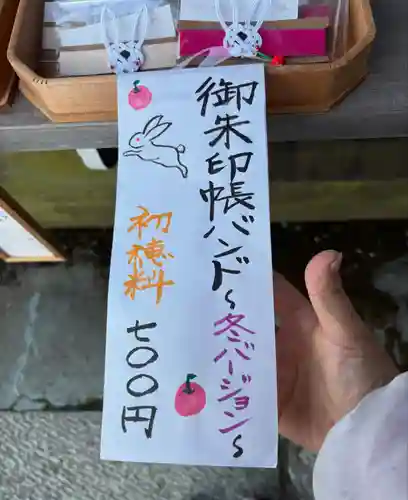 御朱印帳バンド〜冬バージョン〜
初穂料
七〇〇円